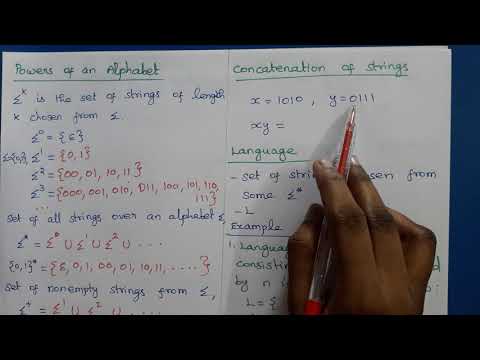 Powers of an Alphabet
Σᵏ is the set of strings of length
k chosen from Σ.
Σ⁰ = {ε}
Σ={0,1}, Σ¹ = {0,1}
Σ² = {00, 01, 10, 11}
Σ³ = {000, 001, 010, 011, 100, 101, 110,
111}
set of all strings over an alphabet Σ,
Σ* = Σ⁰ ∪ Σ¹ ∪ Σ² ∪ ...
{0,1}* = {ε, 0, 1, 00, 01, 10, 11, .....}
set of nonempty strings from Σ,
Σ⁺ = Σ¹ ∪ Σ² ∪ ...
Concatenation of strings
x = 1010 , y = 0111
xy =
Language
- set of from
some Σ*
- L
Example
1. Language
consisting
by n
L = {